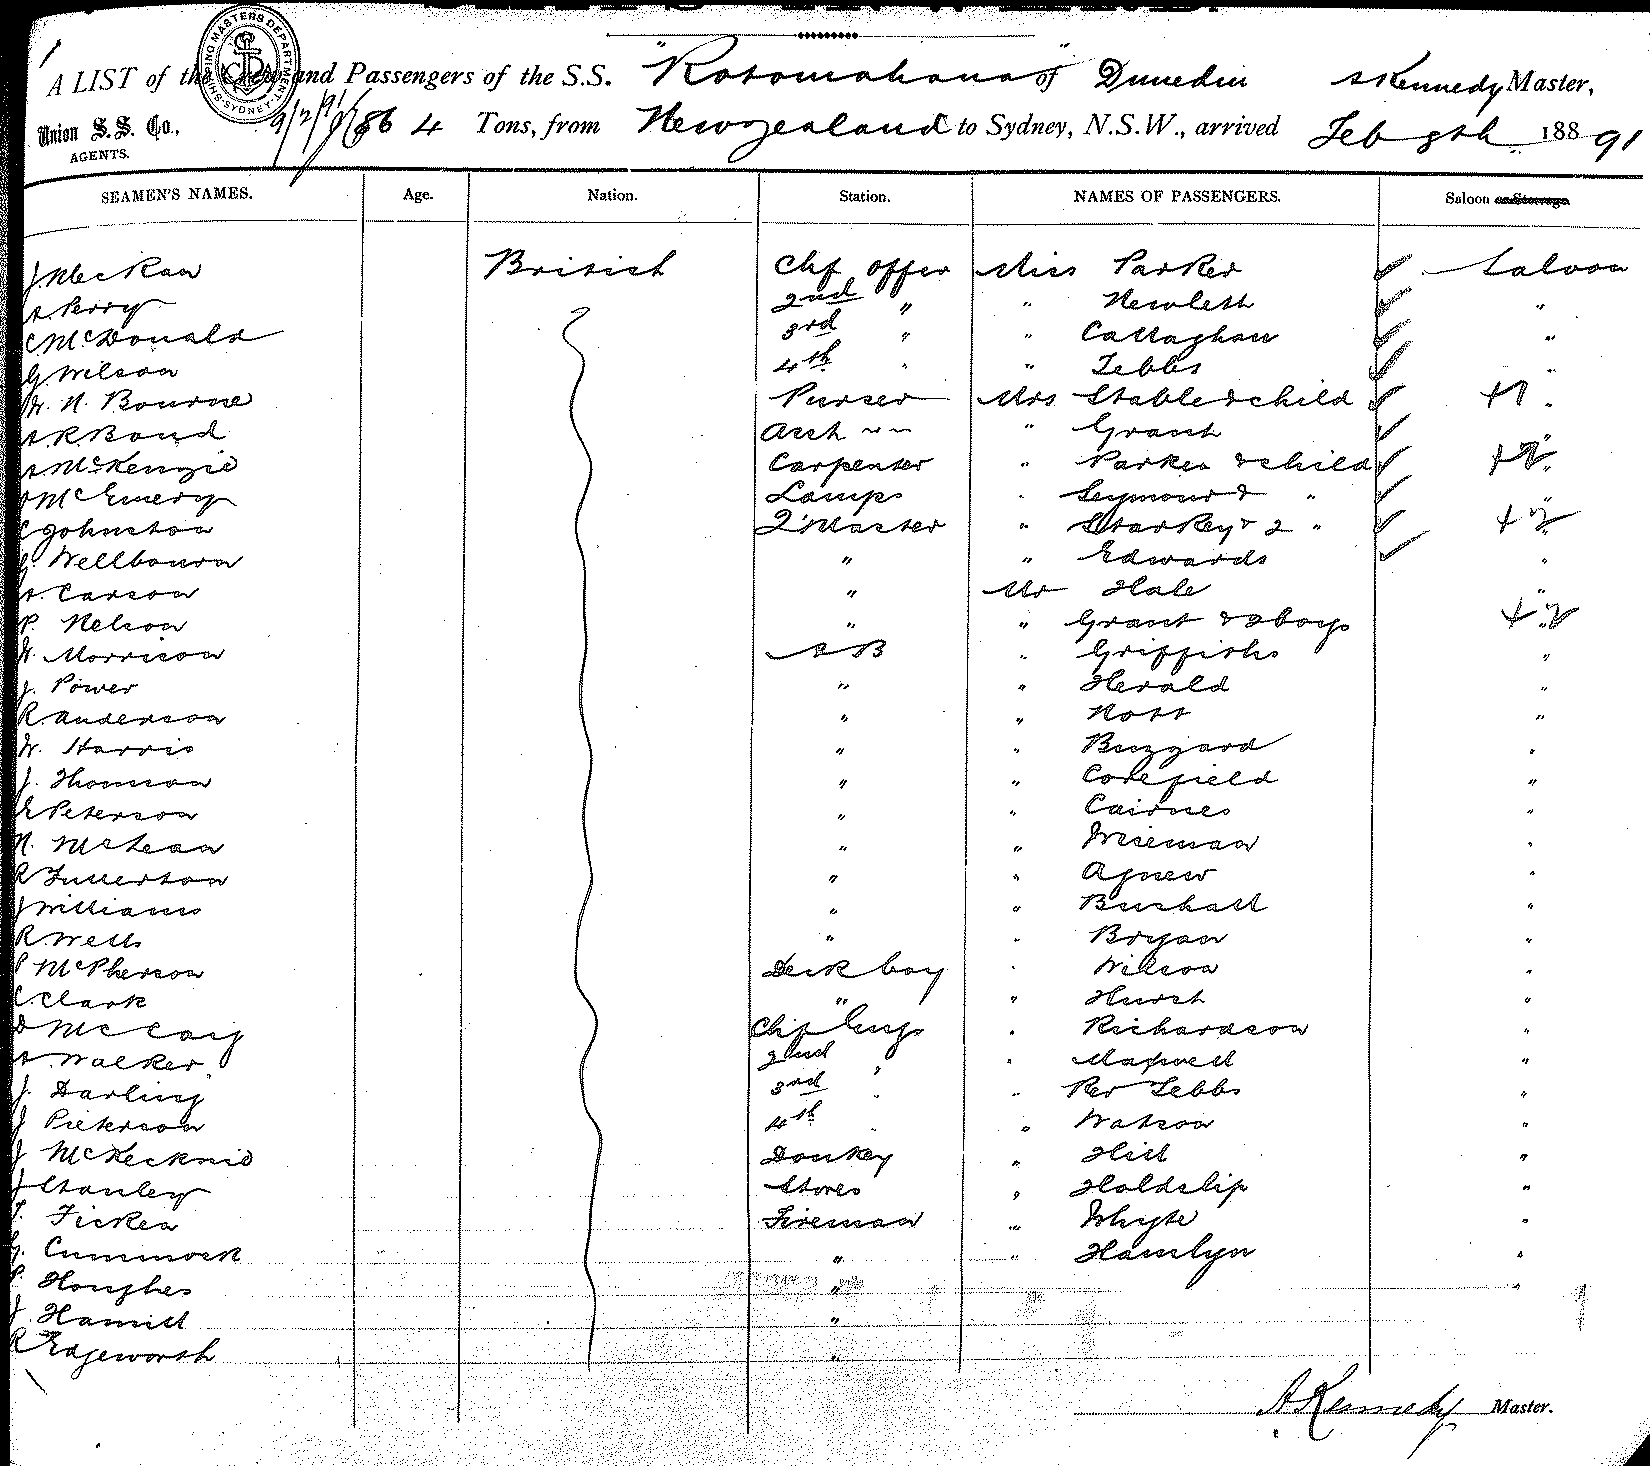 A LIST of the Crew and Passengers of the S.S. "Rotomahana" of Dunedin A Kennedy Master,
Union S. S. Co., AGENTS. 864 Tons, from New Zealand to Sydney, N.S.W., arrived Feb 8th 188 91
SHIPPING MASTERS DEPARTMENT SYDNEY
9/2/91
SEAMEN'S NAMES. Age. Nation. Station. NAMES OF PASSENGERS. Saloon or Steerage
J McRaw British Chf offer Miss Parker Saloon
A Perry 2nd " " Hewlett "
C McDonald 3rd " " Callaghan "
G Wilson 4th " " Tebbs "
W. N. Bourne Purser Mrs Stable & child +1 "
A R Bond Asst " " Grant "
A McKenzie Carpenter " Parker & child
A McEmery Lamps " Seymour & " "
C Johnston Q'Master " Starkey & 2 " + 2
Wellbourn " " Edwards "
A. Carson " Mr Hale "
P. Nelson " " Grant & 2 boys + 2
W. Morrison A B " Griffiths "
J. Power " " Herald "
R Anderson " " Nott "
W. Harris " " Buzzard "
J. Thomson " " Corefield "
E Peterson " " Cairnes "
N. McLean " " Wiseman "
R Fullerton " " Agnew "
J Williams " " Bushall "
R Wells " " Bryan "
P McPherson Deck boy " Wilson "
C. Clark " " Hurst "
D McCaig Chf Engr " Richardson "
A Walker 2nd " " Maxwell "
J. Darling 3rd " " Rev Tebbs "
J Pickerson 4th " " Watson "
J McKecknie Donkey " Hill "
J Stanley Stores " Holdslip "
T. Ficken Fireman " Whyte "
G. Cummock " " Hamlyn "
P. Houghes " "
J. Hamill "
R Edgeworth "
A Kennedy Master.